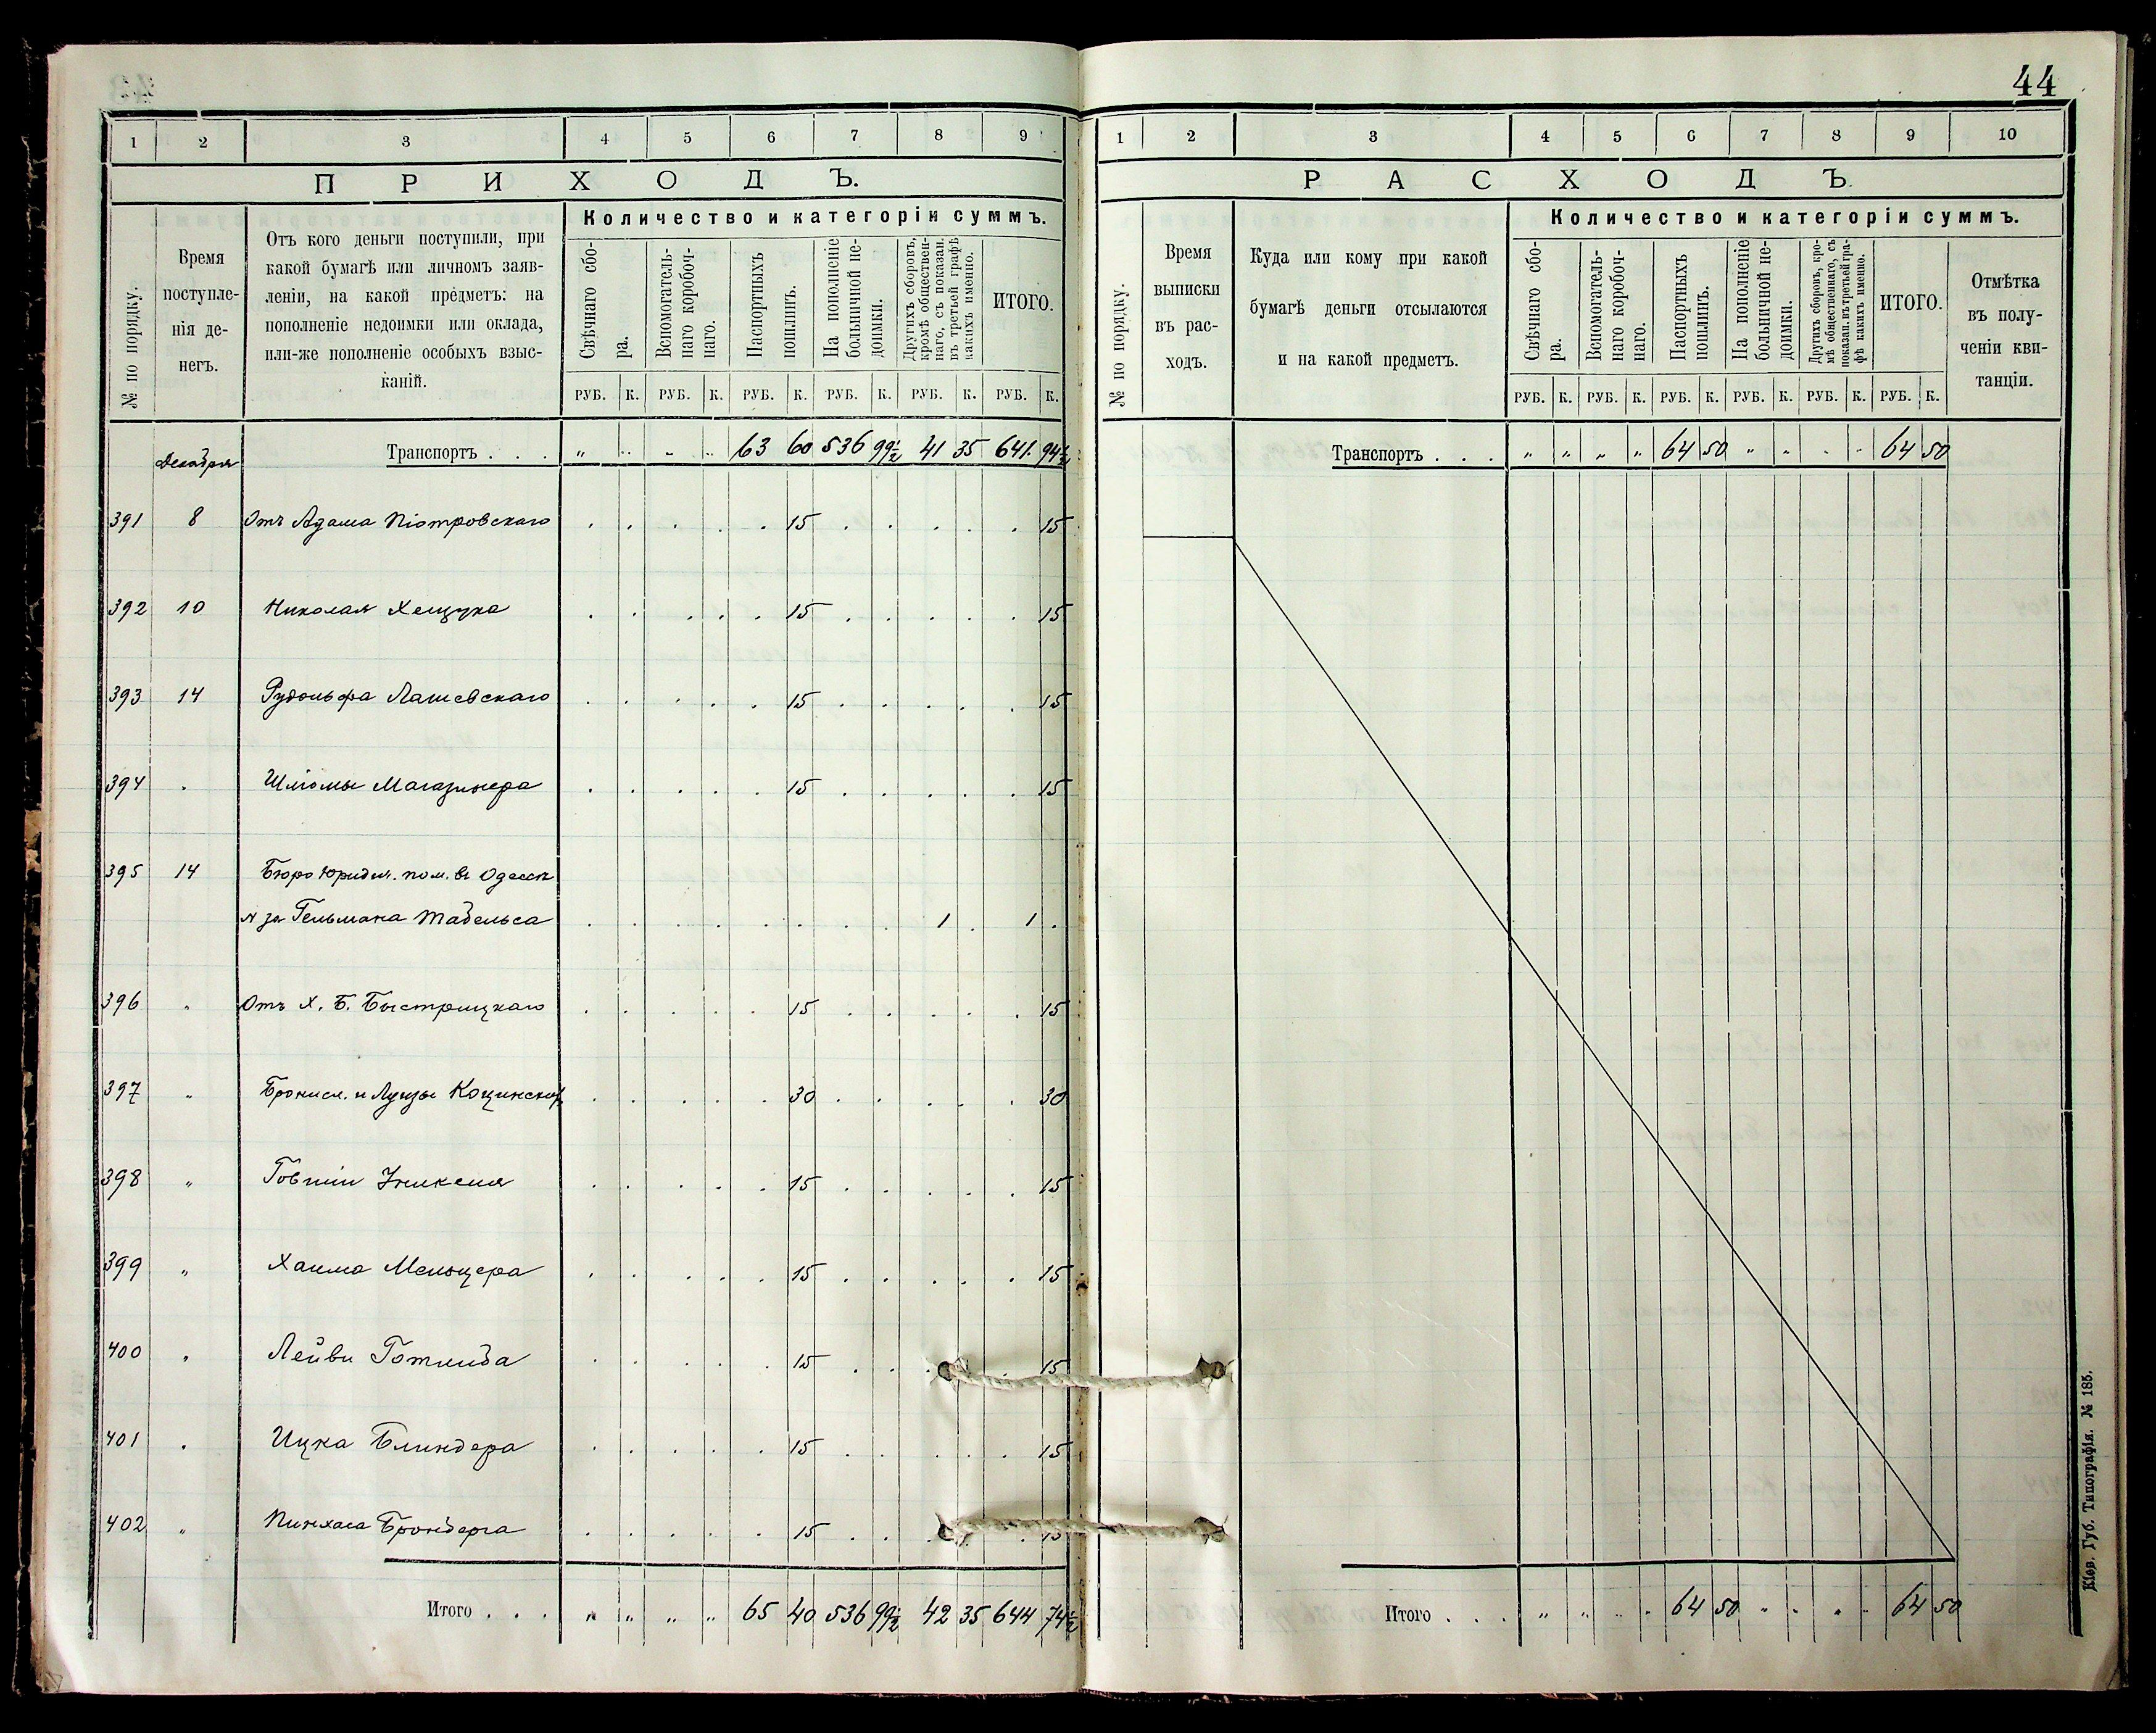 44
1 2 3 4 5 6 7 8 9
ПРИХОДЪ.
№ по порядку.
Время
поступле-
нія де-
негъ.
Отъ кого деньги поступили, при
какой бумагѣ или личномъ заяв-
леніи, на какой предметъ: на
пополненіе недоимки или оклада,
или-же пополненіе особыхъ взыс-
каній.
Количество и категоріи суммъ.
Свѣчнаго сбо-
ра.
Вспомогатель-
наго коробоч-
наго.
Паспортныхъ
пошлинъ.
На пополненіе
больничной не-
доимки.
Другихъ сборовъ,
кромѣ обществен-
наго, съ показан.
въ третьей графѣ
какихъ именно.
ИТОГО.
РУБ. К. РУБ. К. РУБ. К. РУБ. К. РУБ. К. РУБ. К.
Декабря Транспортъ . . . „ „ „ „ 63 60 536 99½ 41 35 641 94½
391 8 Отъ Адама Піотровскаго 15 15
392 10 Николая Хещука 15 15
393 14 Рудольфа Лашевскаго 15 15
394 „ Шліомы Магазинера 15 15
395 14 Бюро Юридич. пом. въ Одессѣ
за Гельмана Табельса 1 1
396 „ Отъ Х. Б. Быстрицкаго 15 15
397 „ Бронисл. и Луизы Коцинских 30 30
398 „ 15 15
399 „ Хаима Мельцера 15 15
400 „ Лейви Готлиба 15 15
401 „ Ицка Блиндера 15 15
402 „ Пинхаса Бронберга 15 15
Итого . . . „ „ „ „ 65 40 536 99½ 42 35 644 74½
1 2 3 4 5 6 7 8 9 10
РАСХОДЪ
№ по порядку.
Время
выписки
въ рас-
ходъ.
Куда или кому при какой
бумагѣ деньги отсылаются
и на какой предметъ.
Количество и категоріи суммъ.
Свѣчнаго сбо-
ра.
Вспомогатель-
наго коробоч-
наго.
Паспортныхъ
пошлинъ.
На пополненіе
больничной не-
доимки.
Другихъ сборовъ, кро-
мѣ общественнаго, съ
показан. въ третьей гра-
фѣ какихъ именно.
ИТОГО.
Отмѣтка
въ полу-
ченіи кви-
танціи.
РУБ. К. РУБ. К. РУБ. К. РУБ. К. РУБ. К. РУБ. К.
Транспортъ . . . „ „ „ „ 64 50 „ „ „ „ 64 50
Итого . . . „ „ „ „ 64 50 „ „ „ „ 64 50
Кіев. Губ. Типографія. № 185.